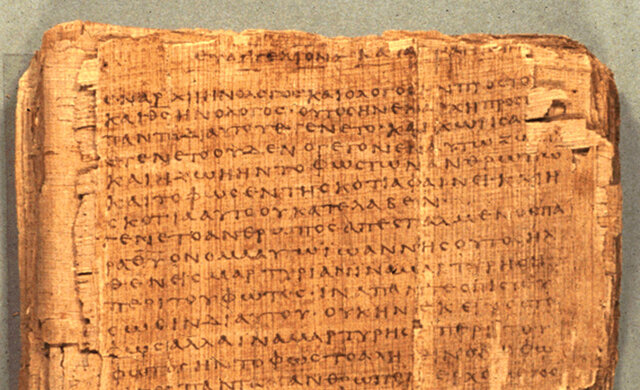 ΕΥΑΓΓΕΛΙΟΝ ΚΑΤΑ
ΕΝ ΑΡΧΗ ΗΝ Ο ΛΟΓΟϹ ΚΑΙ Ο ΛΟΓΟϹ ΗΝ ΠΡΟϹ ΤΟ
ΚΑΙ ΘϹ ΗΝ Ο ΛΟΓΟϹ ΟΥΤΟϹ ΗΝ ΕΝ ΑΡΧΗ ΠΡΟϹ Τ
ΠΑΝΤΑ ΔΙ ΑΥΤΟΥ ΕΓΕΝΕΤΟ ΚΑΙ ΧΩΡΙϹ ΑΥ
ΕΓΕΝΕΤΟ ΟΥΔΕΝ Ο ΓΕΓΟΝΕΝ ΕΝ ΑΥΤΩ ΖΩ
ΚΑΙ Η ΖΩΗ ΗΝ ΤΟ ΦΩϹ ΤΩΝ ΑΝΘΡΩΠΩ
ΚΑΙ ΤΟ ΦΩϹ ΕΝ ΤΗ ϹΚΟΤΙΑ ΦΑΙΝΕΙ ΚΑΙ Η
ϹΚΟΤΙΑ ΑΥΤΟ ΟΥ ΚΑΤΕΛΑΒΕΝ
ΕΓΕΝΕΤΟ ΑΝΘΡΩΠΟϹ ΑΠΕϹΤΑΛΜΕΝΟϹ ΠΑ
ΡΑ ΘΥ ΟΝΟΜΑ ΑΥΤΩ ΙΩΑΝΝΗϹ ΟΥΤΟϹ ΗΛ
ΘΕΝ ΕΙϹ ΜΑΡΤΥΡΙΑΝ ΙΝΑ ΜΑΡΤΥΡΗϹΗ
ΠΕΡΙ ΤΟΥ ΦΩΤΟϹ ΙΝΑ ΠΑΝΤΕϹ ΠΙϹΤΕΥ
ϹΩϹΙΝ ΔΙ ΑΥΤΟΥ ΟΥΚ ΗΝ ΕΚΕΙΝΟϹ ΤΟ
ΦΩϹ ΑΛΛΑ ΙΝΑ ΜΑΡΤΥΡΗϹΗ ΠΕΡΙ ΤΟΥ
ΦΩΤΟϹ ΗΝ ΤΟ ΦΩϹ ΤΟ ΑΛΗ ΝΟΝ Ο ΦΩ
ΠΑΝΤΑ ΑΝΘΡΩΠΟΝ ΕΡΧΟΜΕΝΟΝ